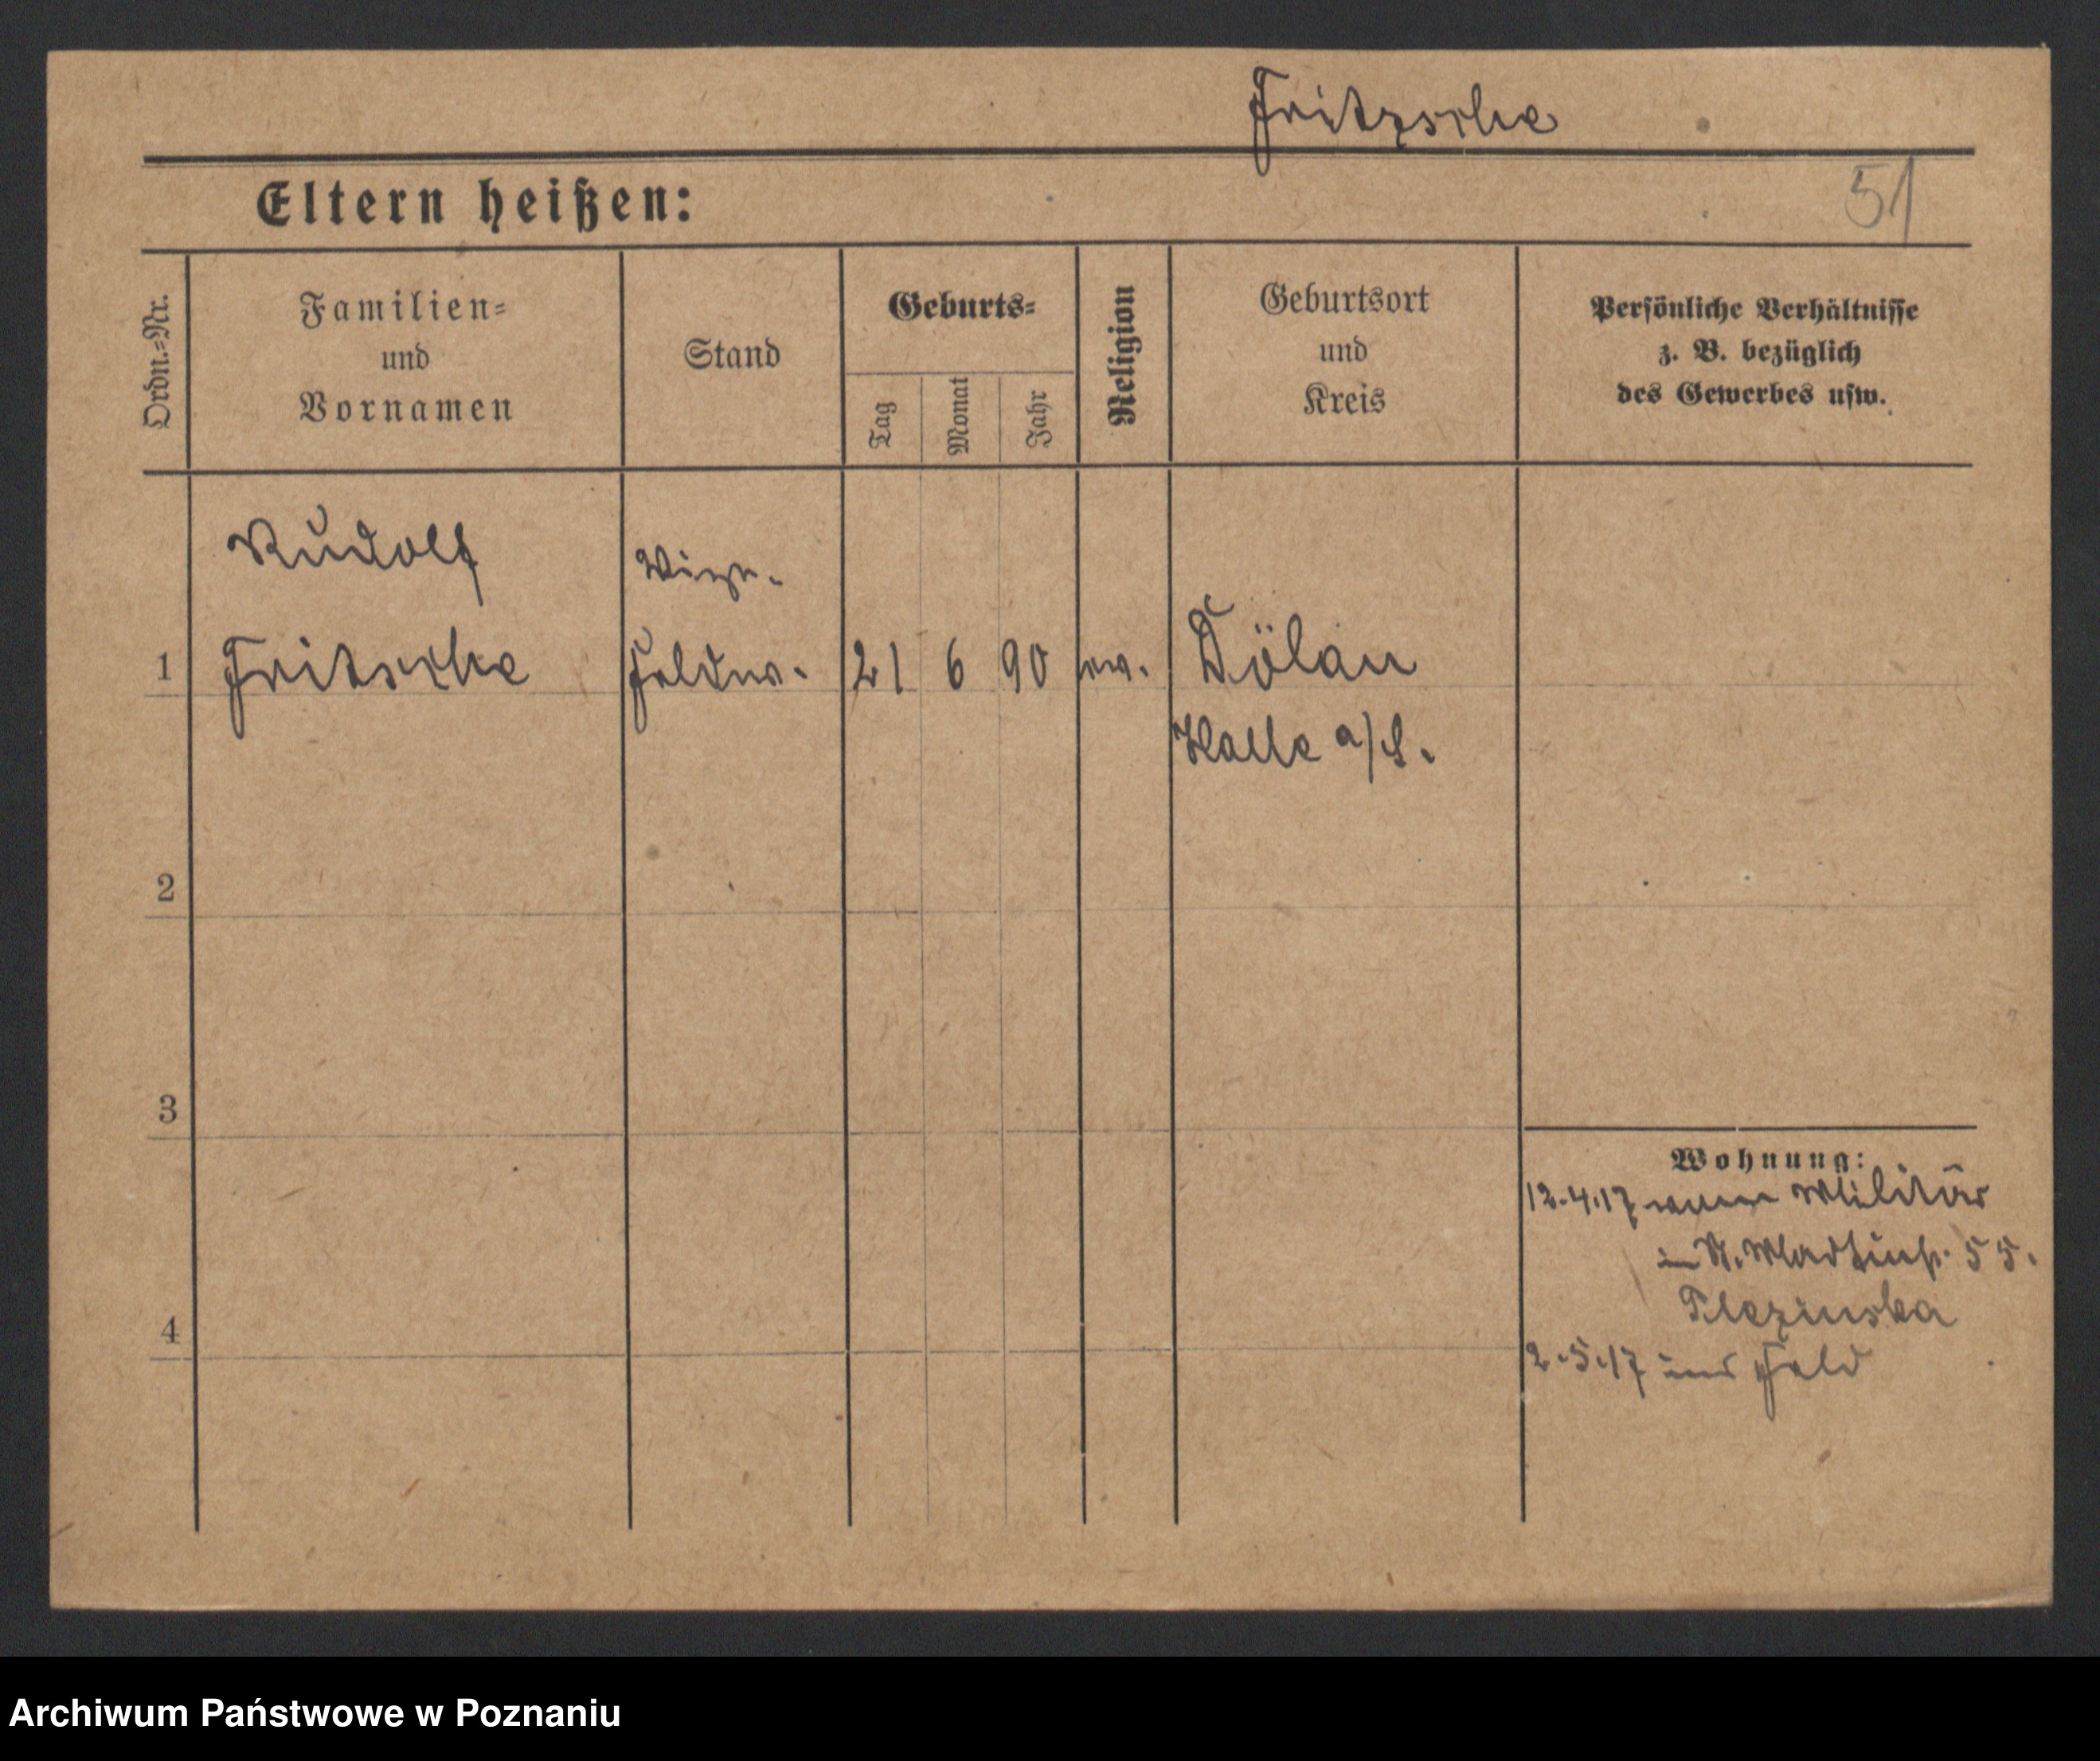 Fritzsche
51
Eltern heißen:
Ordn.=Nr.
Familien=
und
Vornamen
Stand
Geburts=
Tag
Monat
Jahr
Religion
Geburtsort
und
Kreis
Persönliche Verhältnisse
z. B. bezüglich
des Gewerbes usw.
Rudolf
Vize-
1 Fritsche Feldw. 21 6 90 ev. Dölau
Halle a/S.
2
3
Wohnung:
12.4.17 vom Militär
in St. Martinstr. 55.
4
2.5.17 ins Feld
Archiwum Państwowe w Poznaniu